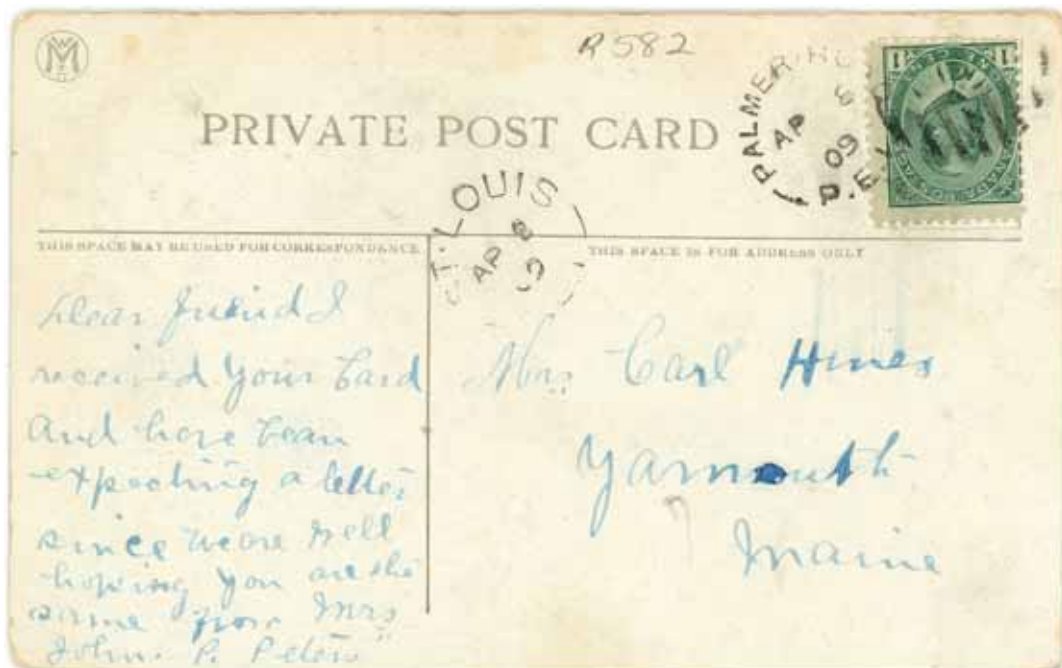 R582
PRIVATE POST CARD
PALMER RO
AP 8
09
P.E.I.
ST. LOUIS
AP 8
9
THIS SPACE MAY BE USED FOR CORRESPONDANCE
THIS SPACE IS FOR ADDRESS ONLY
Dear friend I
received your Card
and have bean
expecting a letter
since we are well
hoping you are the
same from Mrs
John. P. Peters
Mrs Carl Hines
Yarmouth
Maine